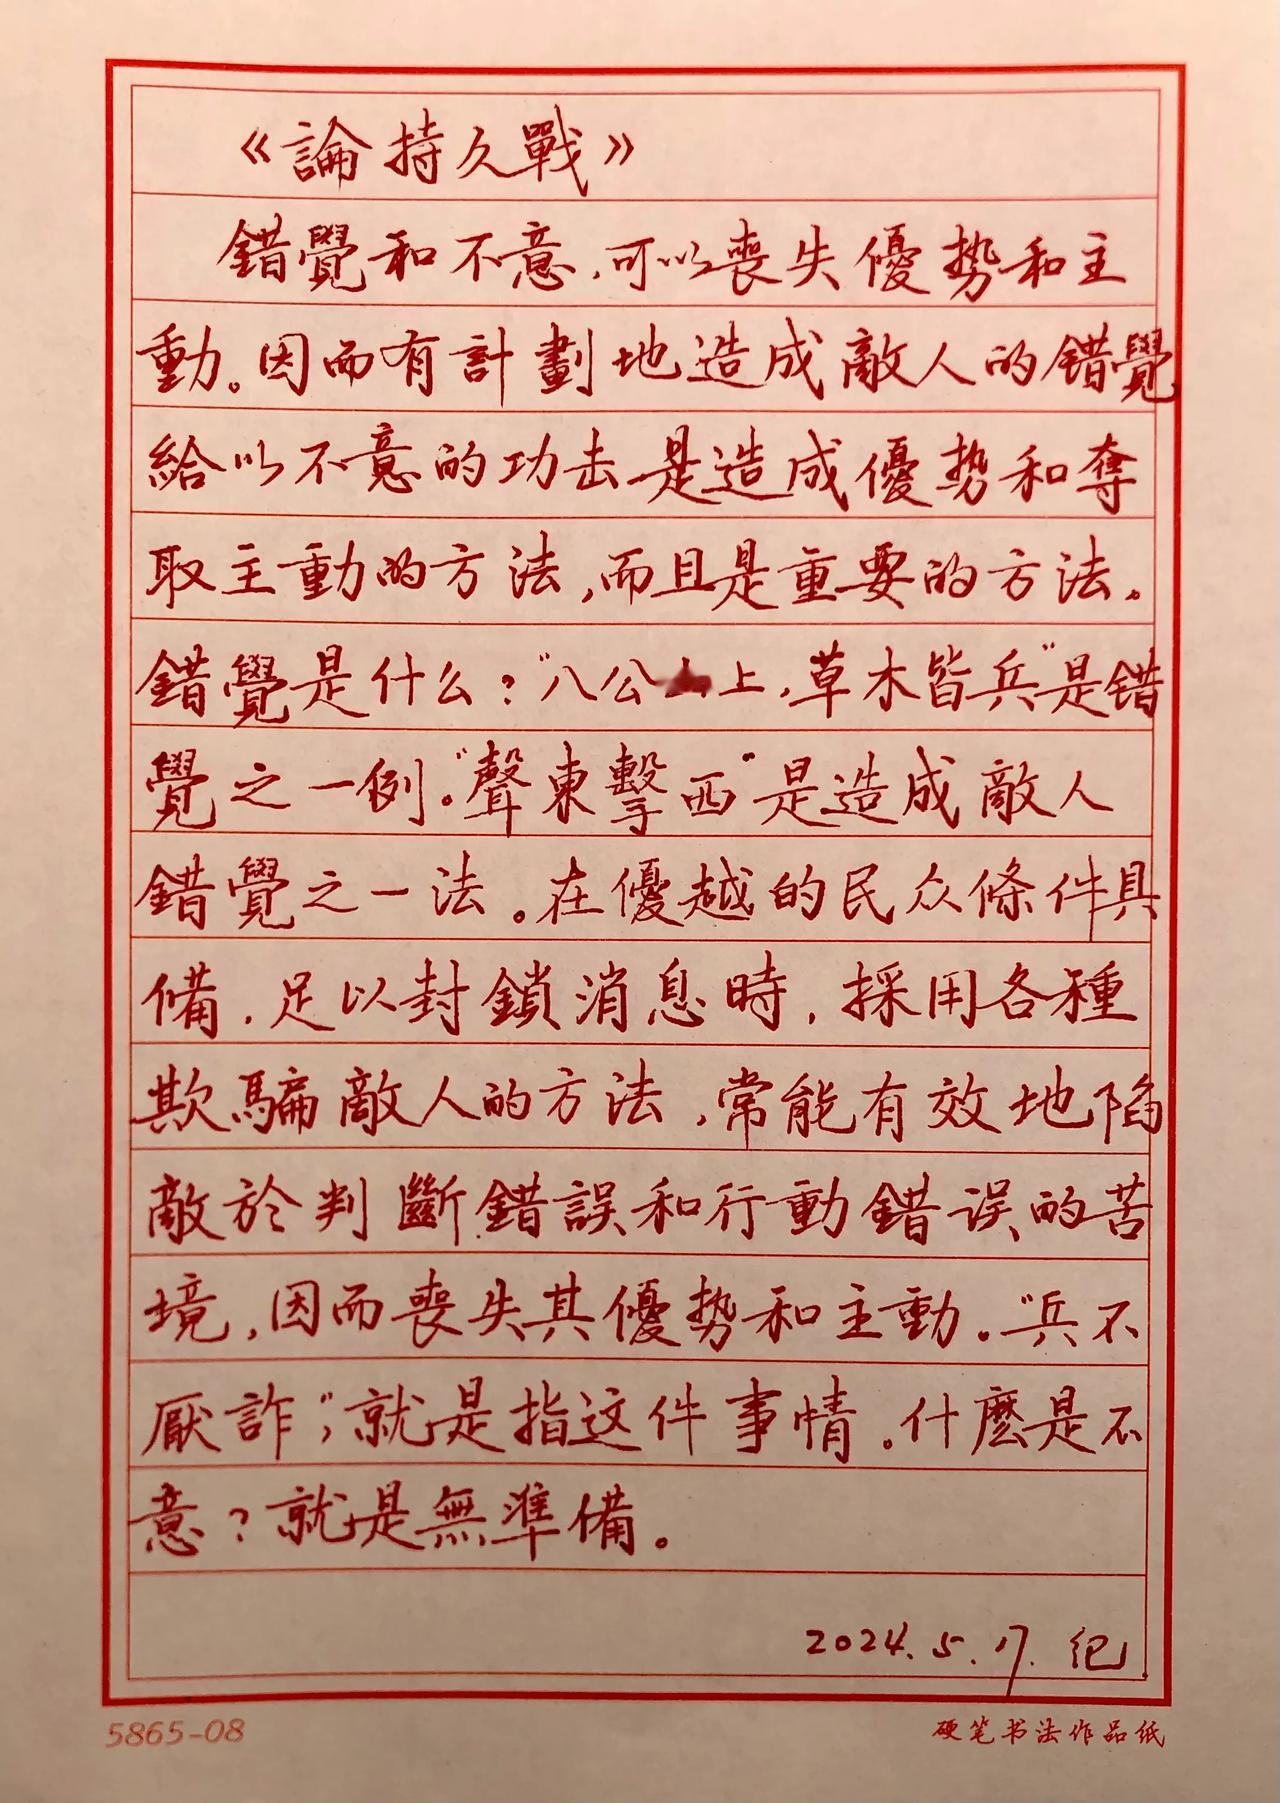 《論持久戰》
錯覺和不意,可以喪失優势和主
動。因而有計劃地造成敵人的錯覺
給以不意的功击是造成優势和奪
取主動的方法,而且是重要的方法。
錯覺是什么?"八公山上,草木皆兵"是錯
覺之一例。"聲東擊西"是造成敵人
錯覺之一法。在優越的民众條件具
備,足以封鎖消息時,採用各種
欺騙敵人的方法,常能有效地陷
敵於判斷錯誤和行動錯误的苦
境,因而喪失其優势和主動。"兵不
厭詐",就是指这件事情。什麽是不
意?就是無準備。
2024.5.17.纪
5865-08
硬笔书法作品纸